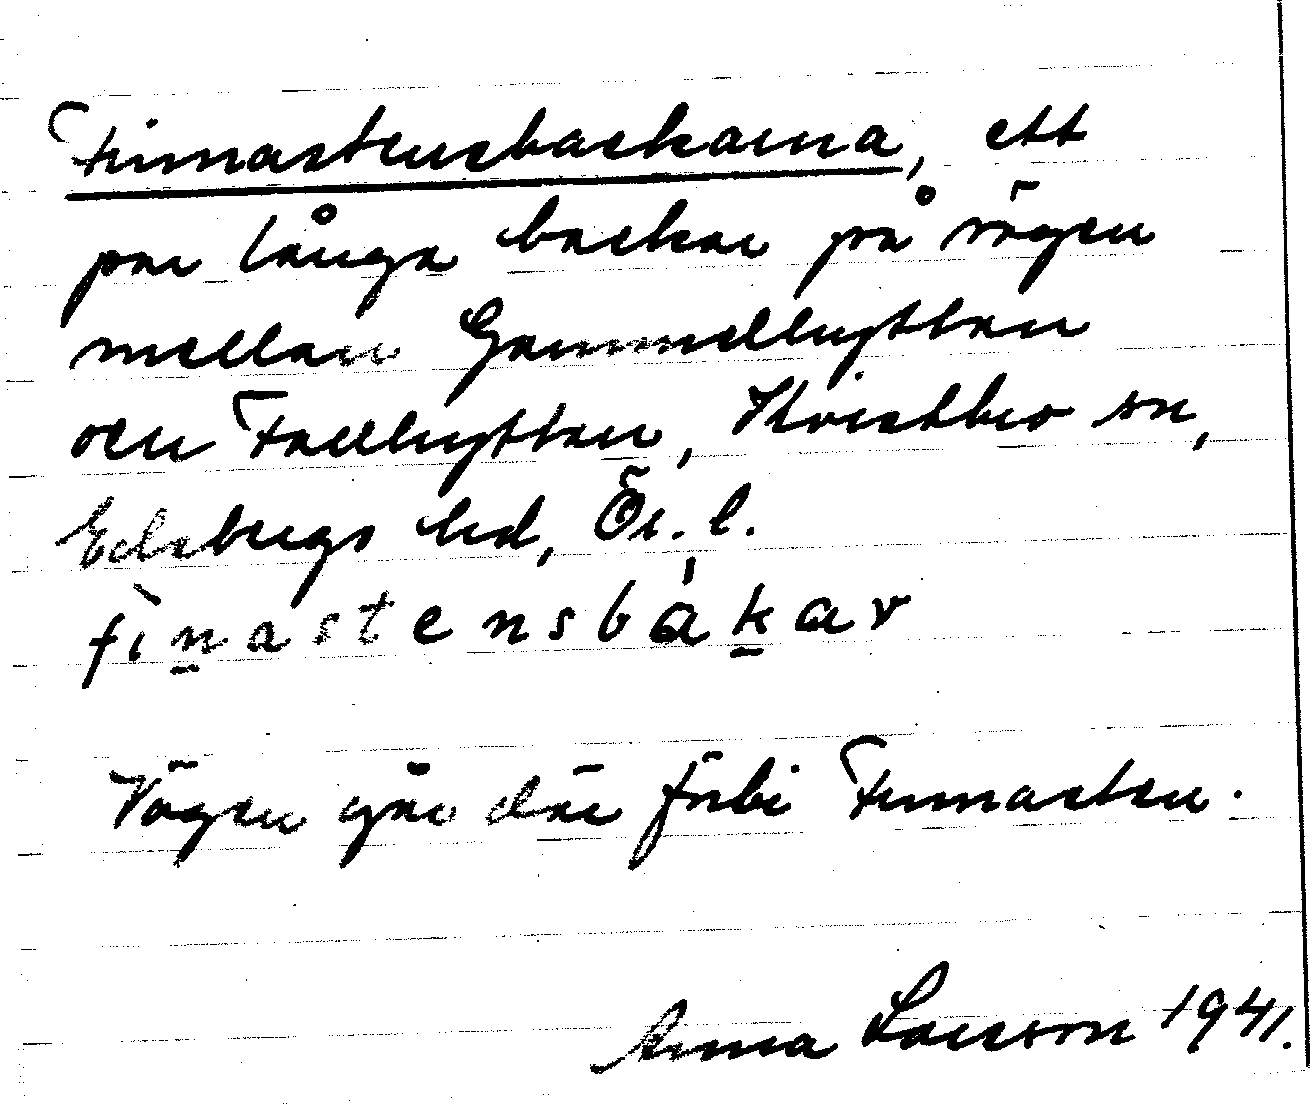 Finnastensbackarna, ett
par långa backar på vägen
mellan Gammelhyttan
och Fallhyttan, Kvistbro sn,
Edsbergs hd, Ör. l.
finastensbàkar
Vägen går där förbi Finnasten.
Anna Larsson 1941.